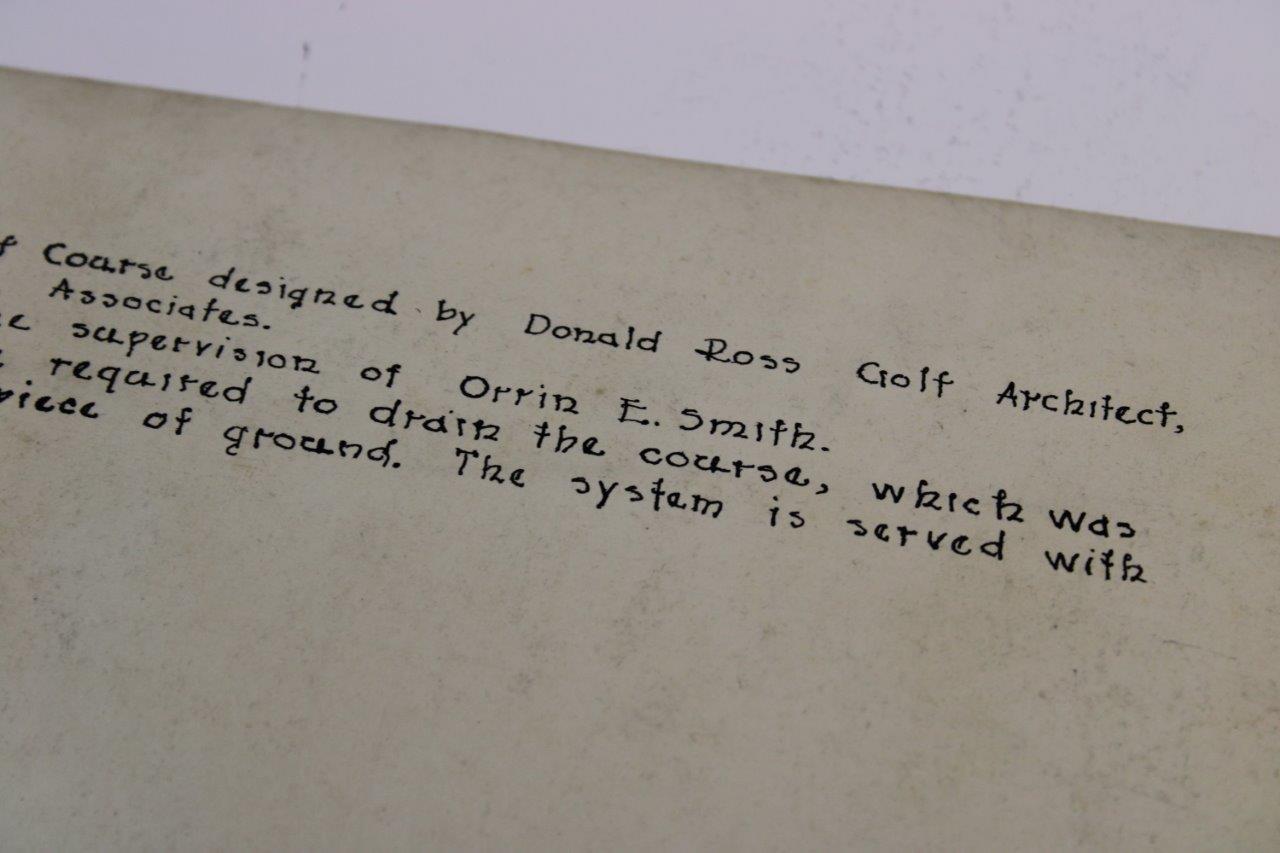 Course designed by Donald Ross Golf Architect,
Associates.
supervision of Orrin E. Smith.
required to drain the course, which was
piece of ground. The system is served with